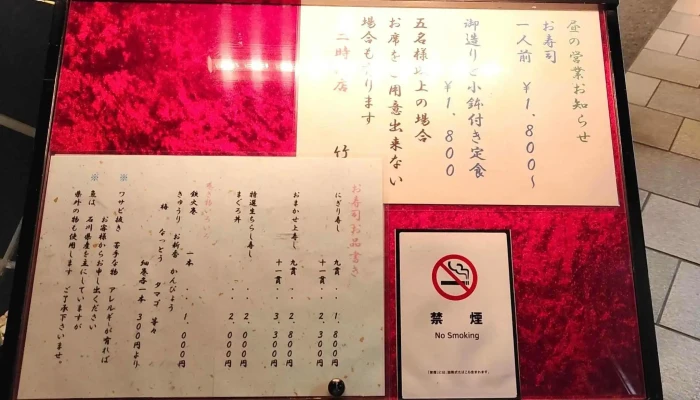 昼の営業お知らせ
お寿司
一人前 ¥1.800~
御造りと小鉢付き定食
¥1.800
五名様以上の場合
お席をご用意出来ない
場合もあります
二時 店
竹
お寿司お品書き
にぎり寿し 九貫 ・・1.800円
十一貫 ・・2.300円
おまかせ上寿し 九貫 ・・2.800円
十一貫 ・・3.300円
特選生ちらし寿し ・・2.000円
まぐろ丼 ・・2.000円
鉄火巻 一本 ・・1.000円
きゅうり お新香 かんぴょう
梅 なっとう タマゴ 等々
細巻各一本 300円より
※ ワサビ抜き 苦手な物 アレルギーが有れば
お客様からお申し出ください
※ 魚は 石川県産を主にしていますが
県外の物も使用します ご了承下さいませ。
禁煙
No Smoking